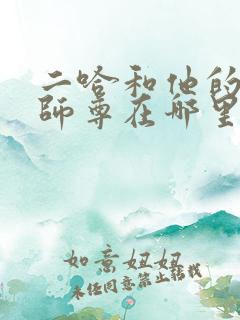 二哈和他的
師尊在哪里
如意妞妞
未任同意禁止转载